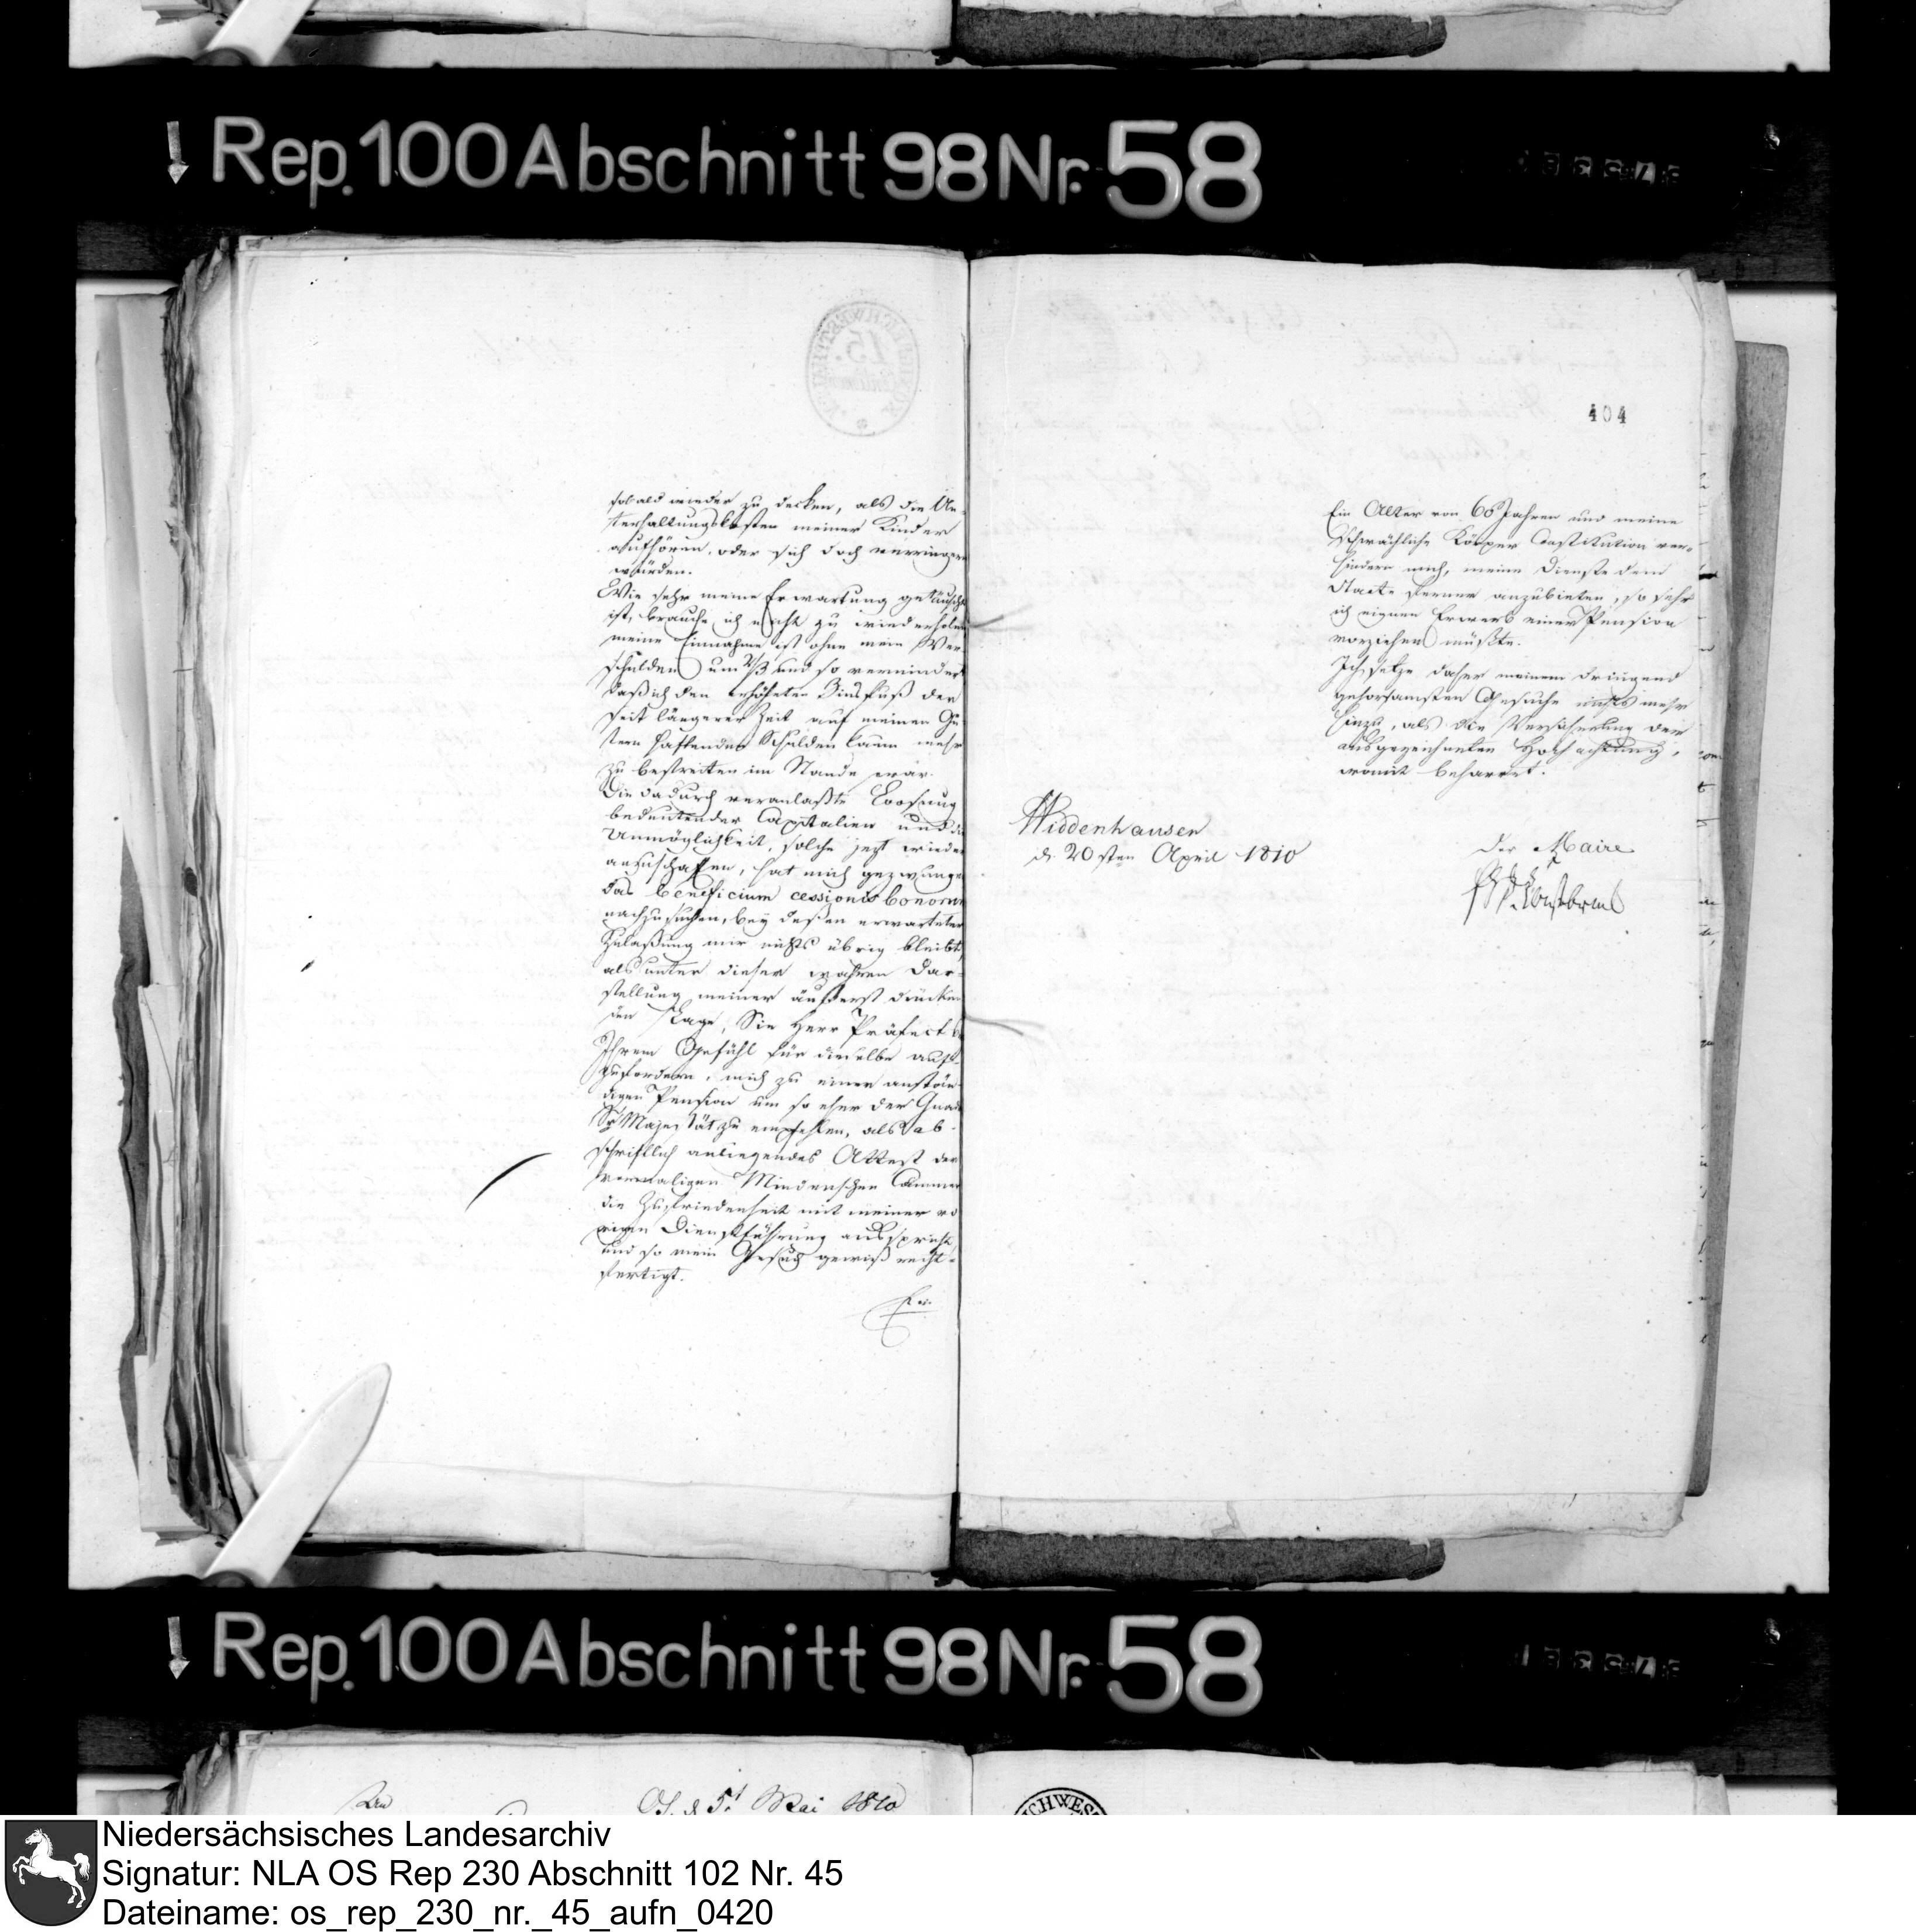 Rep. 100 Abschnitt 98 Nr. 58
404
sobald wieder zu decken, als die Un-
terhaltungskosten meiner Kinder
aufhören, oder sich doch verringern
würden.
Wie sehr meine Erwartung getäuscht
ist, brauche ich nicht zu wiederholen
meine Einnahme ist ohne mein Ver-
schulden um 2/3 und so vermindert
daß ich den erhöheten Zinsfuß der
seit längerer Zeit auf meinen Gü-
tern haftenden Schulden kaum mehr
zu bestreiten im Stande war.
Die dadurch veranlaßte Loosung
bedeutender Capitalien und die
Unmöglichkeit, solche jezt wieder
anzuschaffen, hat mich gezwungen
das beneficium cessionis bonorum
nachzusuchen, bey deßen erwarteter
Zulaßung mir nichts übrig bleibt,
als unter dieser wahren Dar-
stellung meiner äußerst drücken
den Lage, Sie Herr Präfect
Ihrem Gefühl für dieselbe auf-
zufordern, mich zu einer anstän-
digen Pension um so eher der Gnade
Sr Majestät zu empfehlen, als ab-
schriftlich anliegendes Attest der
vormaligen Mindenschen Cammer
die Zufriedenheit mit meiner vo
rigen Dienstführung ausspricht,
und so mein Gesuch gewiß recht-
fertigt.
Ein
Ein Alter von 60 Jahren und meine
schwächliche Körper Constitution ver-
hindern mich, meine Dienste dem
Staate ferner anzubieten, so sehr
ich eignen Erwerb einer Pension
vorziehen müßte.
Ich setze daher meinem dringend
gehorsamsten Gesuche nichts mehr
hinzu, als die Versicherung der
ausgezeichneten Hochachtung,
womit beharret.
Hiddenhausen
d. 20sten April 1810
der Maire
Rep. 100 Abschnitt 98 Nr. 58
Os. d 5t Mai 1810
Niedersächsisches Landesarchiv
Signatur: NLA OS Rep 230 Abschnitt 102 Nr. 45
Dateiname: os_rep_230_nr._45_aufn_0420